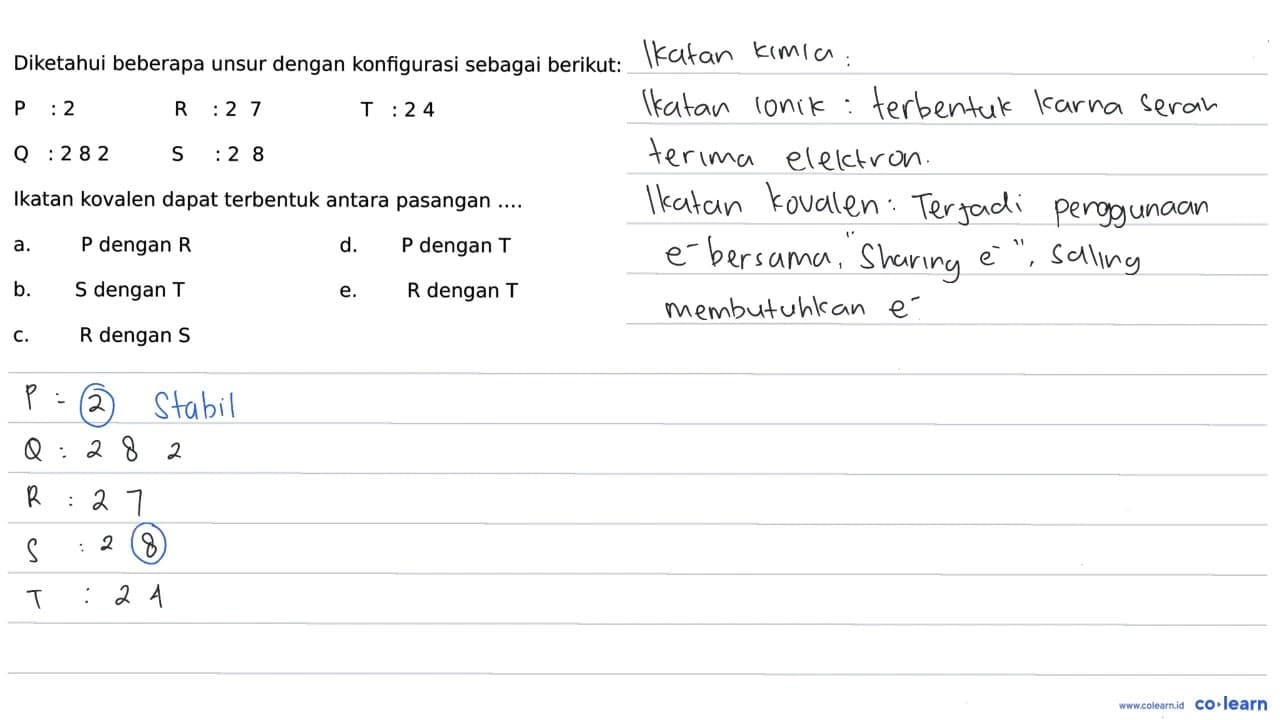 Diketahui beberapa unsur dengan konfigurasi sebagai berikut:
P : 2 R : 2 7 T : 2 4
Q : 2 8 2 S : 2 8
Ikatan kovalen dapat terbentuk antara pasangan ....
a. P dengan R d. P dengan T
b. S dengan T e. R dengan T
c. R dengan S
Ikatan kimia :
Ikatan ionik : terbentuk karna serah
terima elektron.
Ikatan kovalen : Terjadi penggunaan
e⁻ bersama, "Sharing e⁻", saling
membutuhkan e⁻
P = 2 Stabil
Q : 2 8 2
R : 2 7
S : 2 8
T : 2 4
www.colearn.id co·learn